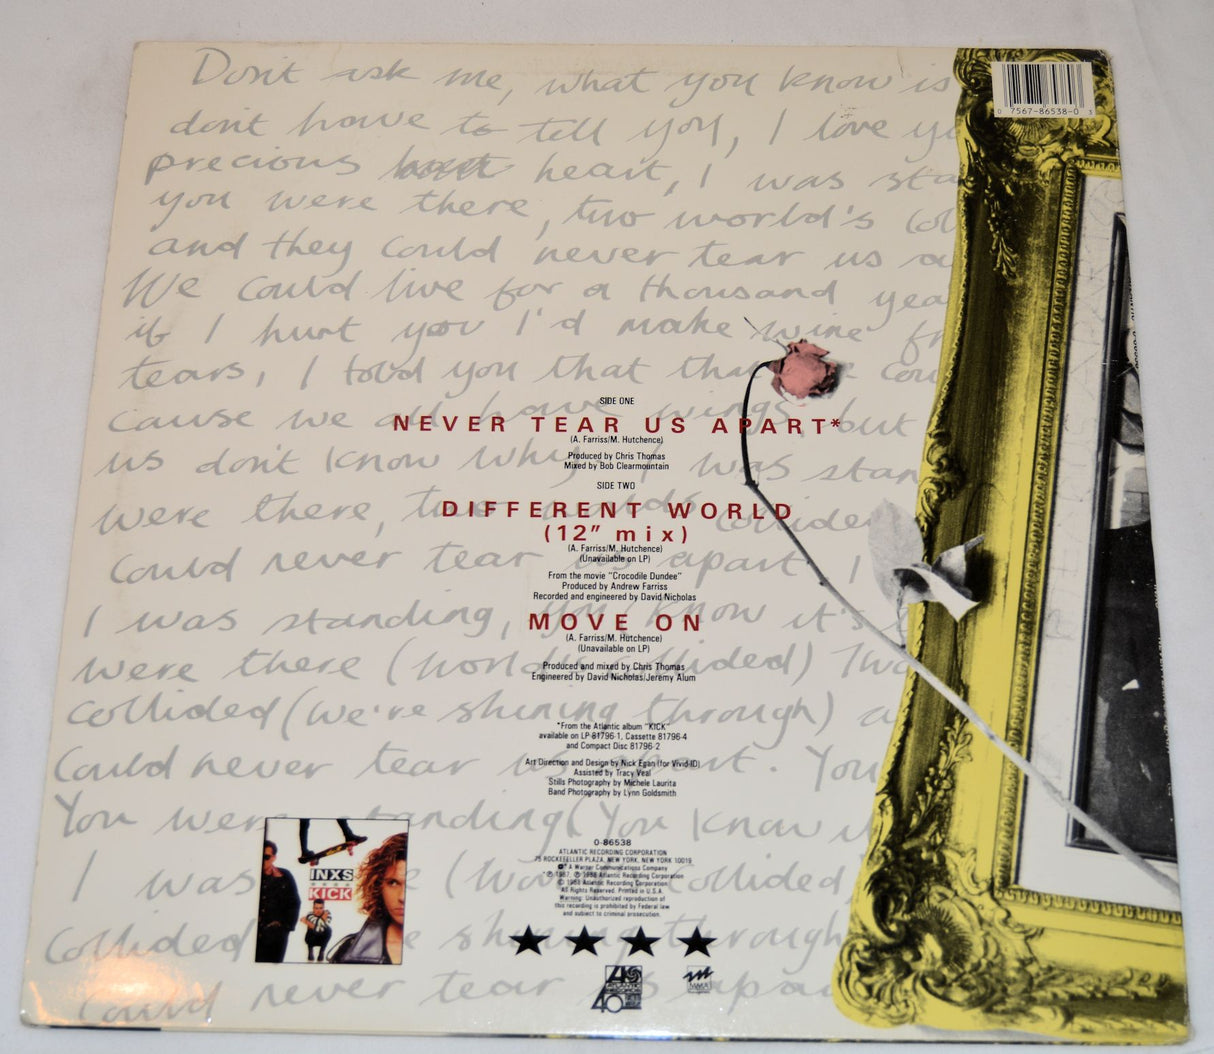 Don't ask me, what you know is
don't have to tell you, I love yo
precious heart, I was sta
you were there, two world's col
and they could never tear us a
We could live for a thousand yea
if I hurt you I'd make wine fr
tears, I told you that that cou
cause we all have wings, but
us don't know why I was stan
were there, two worlds collide
could never tear us apart I
I was standing, you know it's
were there (worlds collided) Two
collided (we're shining through) a
Could never tear us apart. You
You were standing (You know it
I was (wor collided)
collided shining through
could never tear us apa
0 7567-86538-0 3
SIDE ONE
NEVER TEAR US APART*
(A. Farriss/M. Hutchence)
Produced by Chris Thomas
Mixed by Bob Clearmountain
SIDE TWO
DIFFERENT WORLD
(12" mix)
(A. Farriss/M. Hutchence)
(Unavailable on LP)
From the movie "Crocodile Dundee"
Produced by Andrew Farriss
Recorded and engineered by David Nicholas
MOVE ON
(A. Farriss/M. Hutchence)
(Unavailable on LP)
Produced and mixed by Chris Thomas
Engineered by David Nicholas/Jeremy Alum
*From the Atlantic album "KICK"
available on LP 81796-1, Cassette 81796-4
and Compact Disc 81796-2
Art Direction and Design by Nick Egan (for Vivid-ID)
Assisted by Tracy Veal
Stills Photography by Michele Laurita
Band Photography by Lynn Goldsmith
INXS
KICK
0-86538
ATLANTIC RECORDING CORPORATION
75 ROCKEFELLER PLAZA, NEW YORK, NEW YORK 10019
A Warner Communications Company
℗ 1987, ℗ 1988 Atlantic Recording Corporation
© 1988 Atlantic Recording Corporation
All Rights Reserved. Printed in U.S.A.
Warning: Unauthorized reproduction of
this recording is prohibited by Federal law
and subject to criminal prosecution.
40